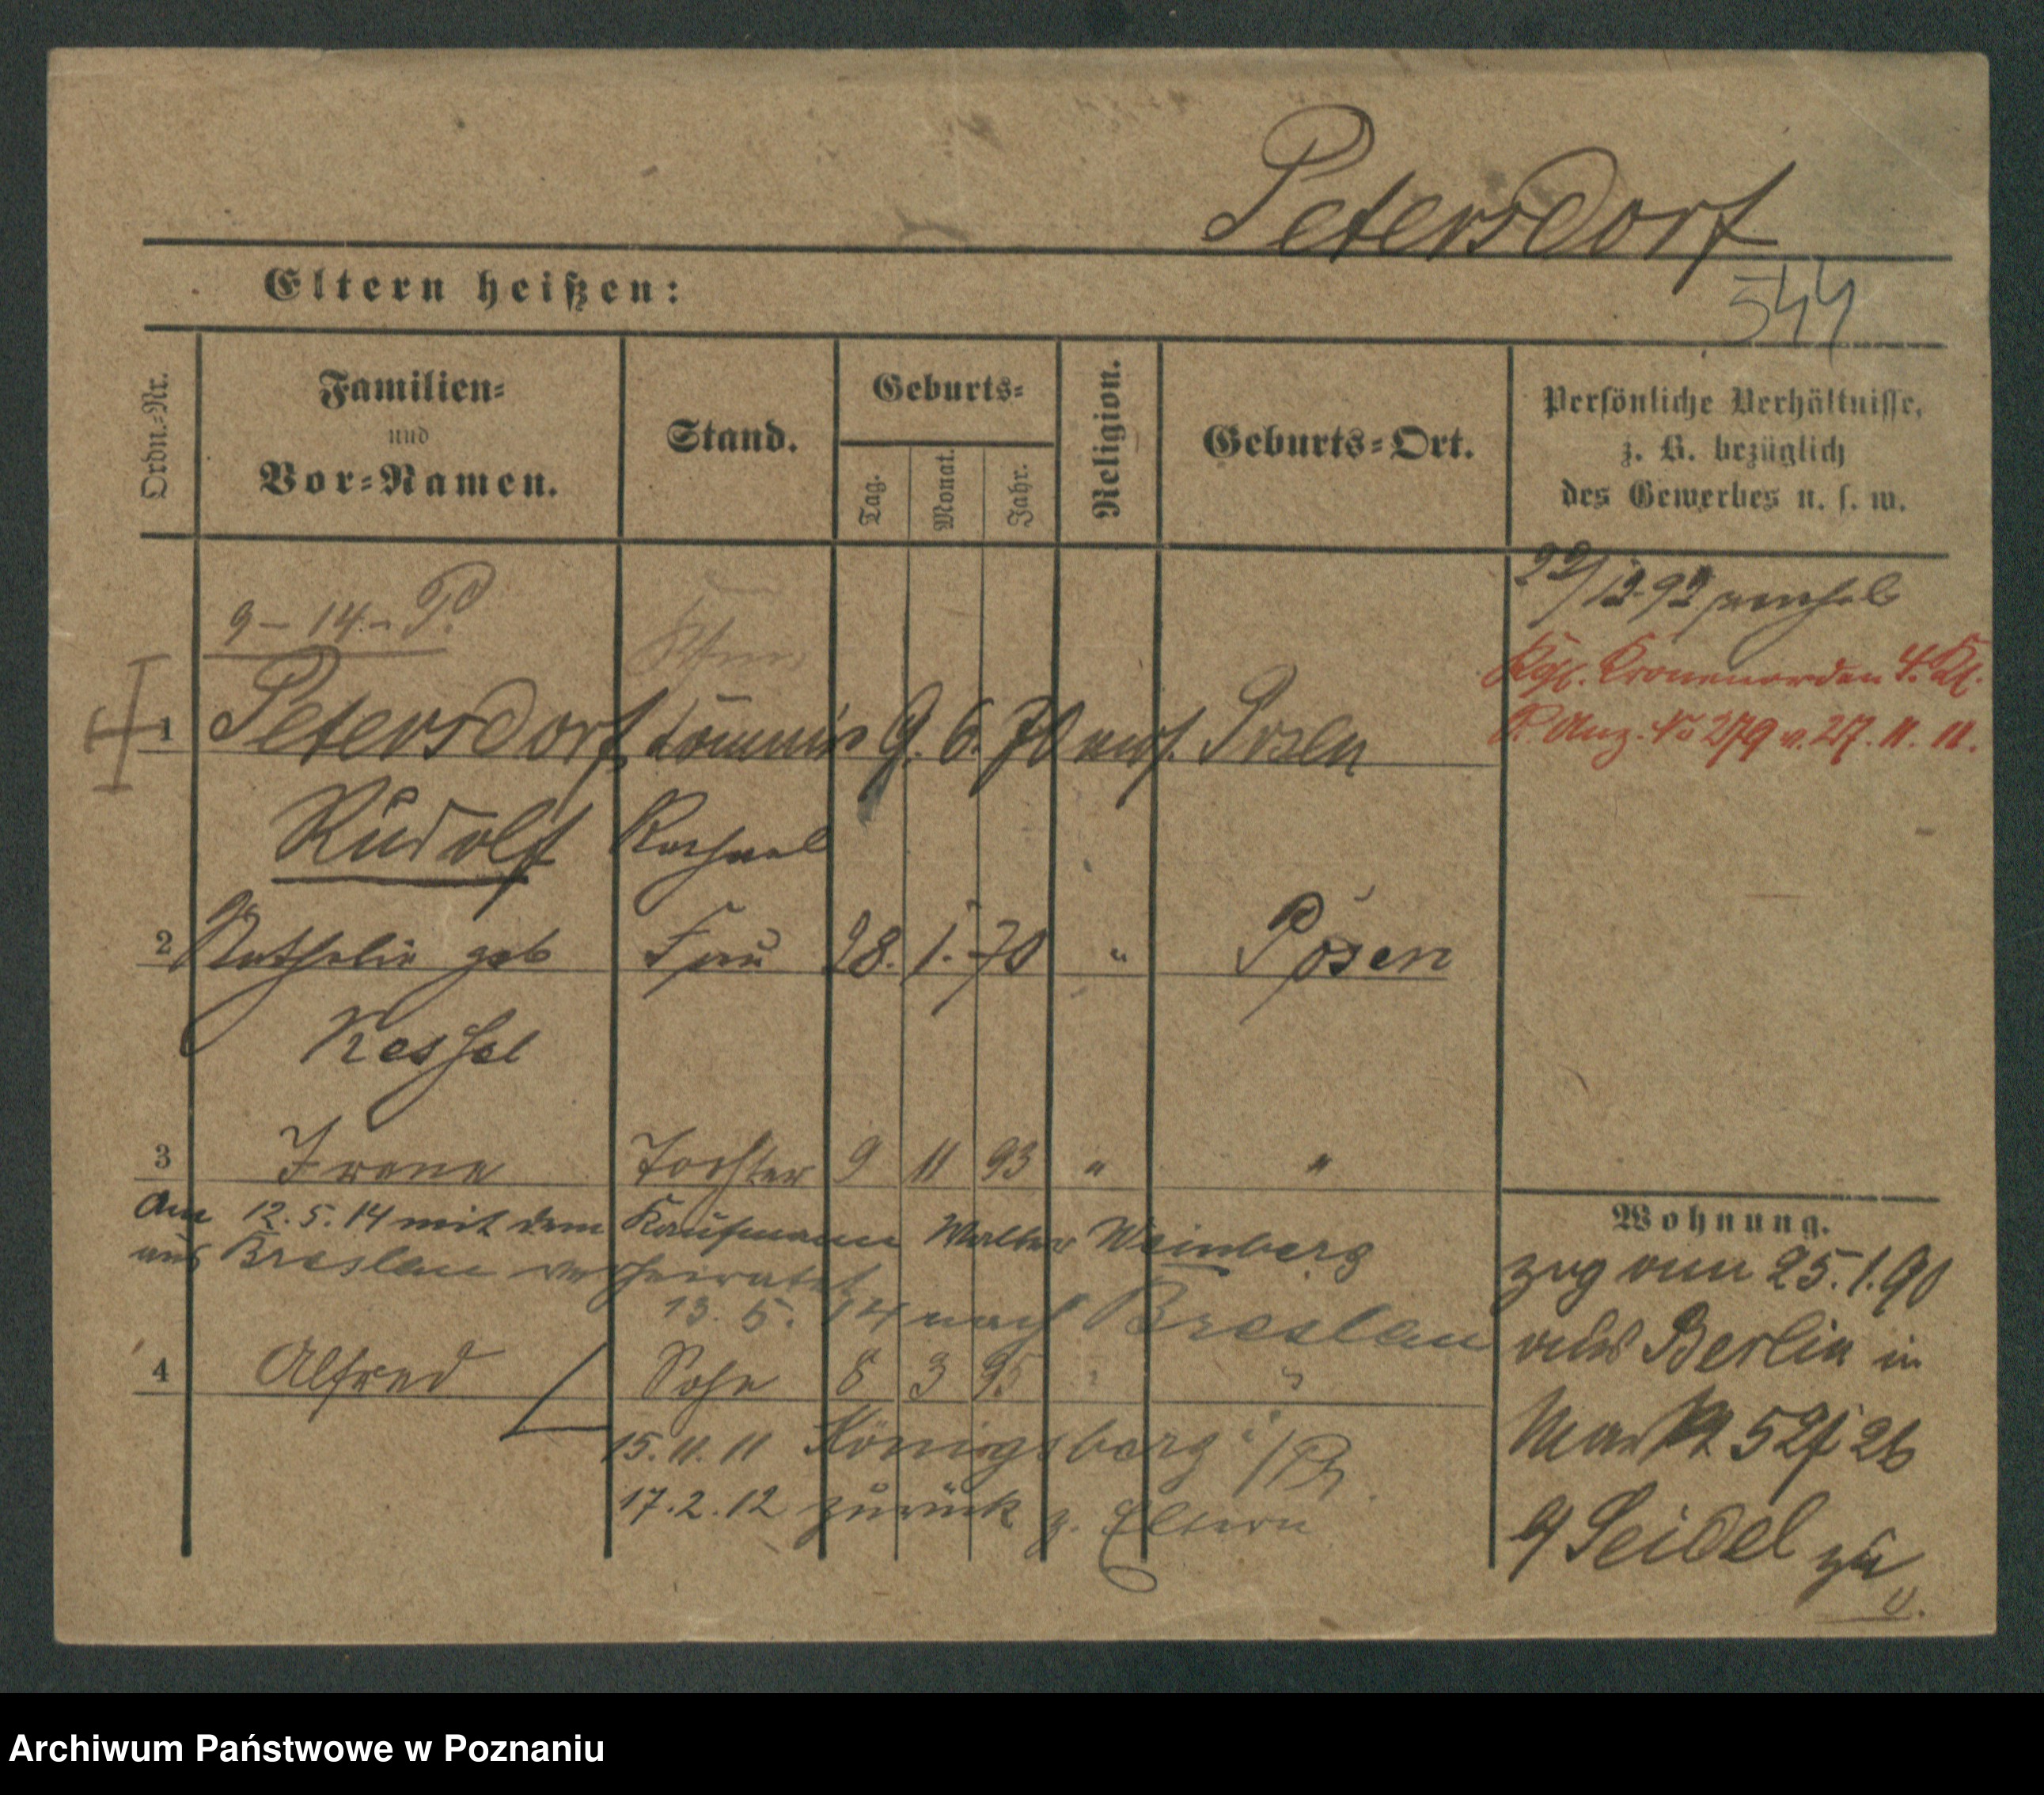 Petersdorf
544
Eltern heißen:
Ordn.-Nr.
Familien-
und
Vor-Namen.
Stand.
Geburts-
Tag.
Monat.
Jahr.
Religion.
Geburts-Ort.
Persönliche Verhältnisse,
z. B. bezüglich
des Gewerbes u. s. w.
9-14.- P.
Kgl. Kronenorden 4. Kl.
R. Anz. No 279 v. 27. 11. 11.
1 Petersdorf, 9. 6. 70 mos. Posen
Rudolf
2 Nathalie geb Frau 28. 1. 70 " Posen
3 Irene Tochter 9 11 93 " "
Am 12. 5. 14 mit dem Kaufmann Walter Weinberg
aus Breslau verheiratet
13. 5. 14 nach Breslau
4 Alfred Sohn 8 3 95 " "
15. 11. 11 Königsberg i/Pr.
17. 2. 12 zurück z. Eltern
Wohnung.
zog am 25. 1. 90
aus Berlin in
Markt 52
Seidel zu
Archiwum Państwowe w Poznaniu